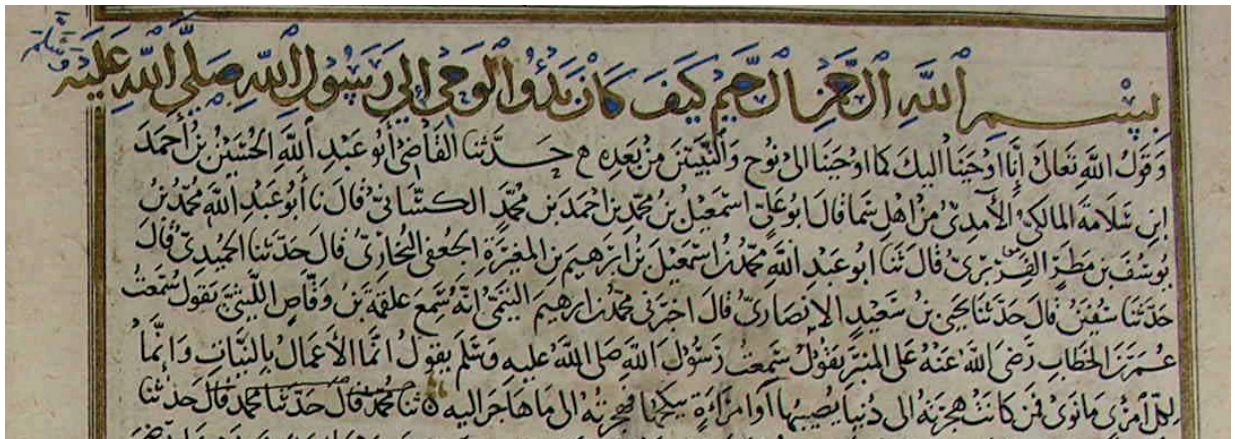 بسم الله الرحمن الرحيم كيف كان بدؤ الوحي الي رسول الله صلي الله عليه وسلم
وقول الله تعالى إنا اوحينا اليك كما اوحينا الى نوح والنبيين من بعده ه حدثنا القاضي أبو عبد الله الحسين بن أحمد
ابن سلامة المالكي الآمدي من اهل قال ابو علي اسمعيل بن محمد بن احمد بن محمد الكشاني قال نا أبو عبد الله محمد بن
يوسف بن مطر الفربري قال ثنا ابو عبد الله محمد بن اسمعيل بن ابرهيم بن المغيرة الجعفي البخاري قال حدثنا الحميدي قال
حدثنا سفين قال حدثنا يحيى بن سعيد الانصاري قال اخبرني محمد بن ابرهيم التيمي انه سمع علقمة بن وقاص الليثي يقول سمعت
عمر بن الخطاب رضي الله عنه على المنبر يقول سمعت رسول الله صلى الله عليه وسلم يقول انما الأعمال بالنيات وإنما
لكل امرئ ما نوى فمن كانت هجرته الى دنيا يصيبها أو امراءة ينكحها فهجرته الى ما هاجر اليه ه ثنا محمد قال حدثنا محمد قال حدثنا